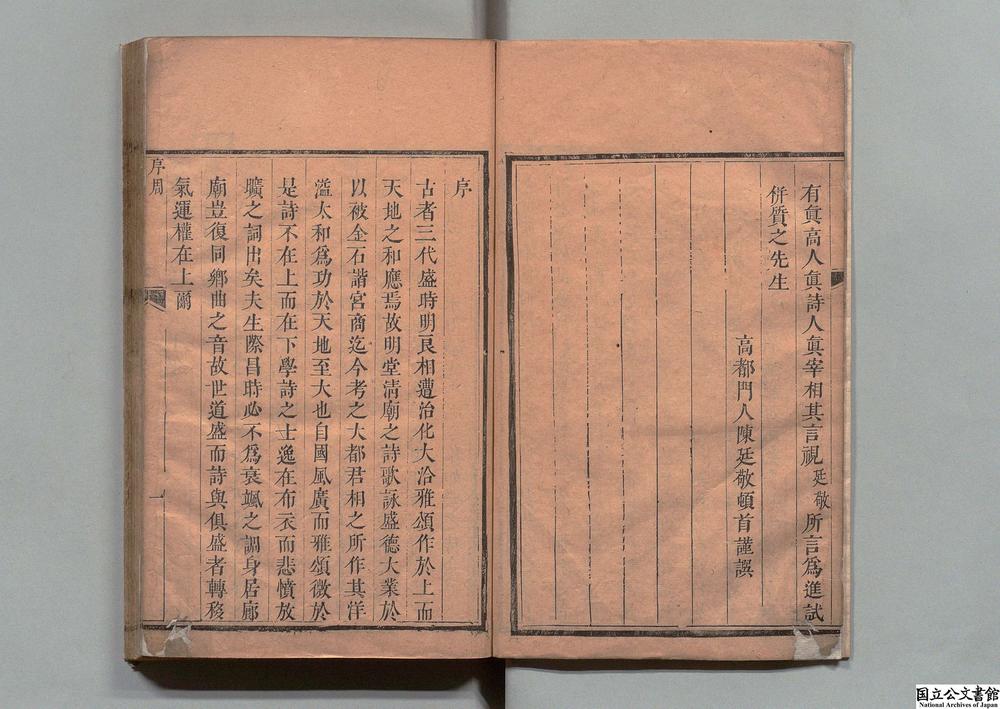 有真高人真詩人真宰相其言視廷敬所言爲進試
併質之先生
高都門人陳廷敬頓首謹譔
序
古者三代盛時明良相遭治化大洽雅頌作於上而
天地之和應焉故明堂清廟之詩歌詠盛德大業於
以被金石諧宮商迄今考之大都君相之所作其洋
溢太和爲功於天地至大也自國風廣而雅頌微於
是詩不在上而在下學詩之士逸在布衣而悲憤放
曠之詞出矣夫生際昌時必不爲衰颯之調身居廊
廟豈復同鄉曲之音故世道盛而詩與俱盛者轉移
氣運權在上爾
序周
一
国立公文書館
National Archives of Japan